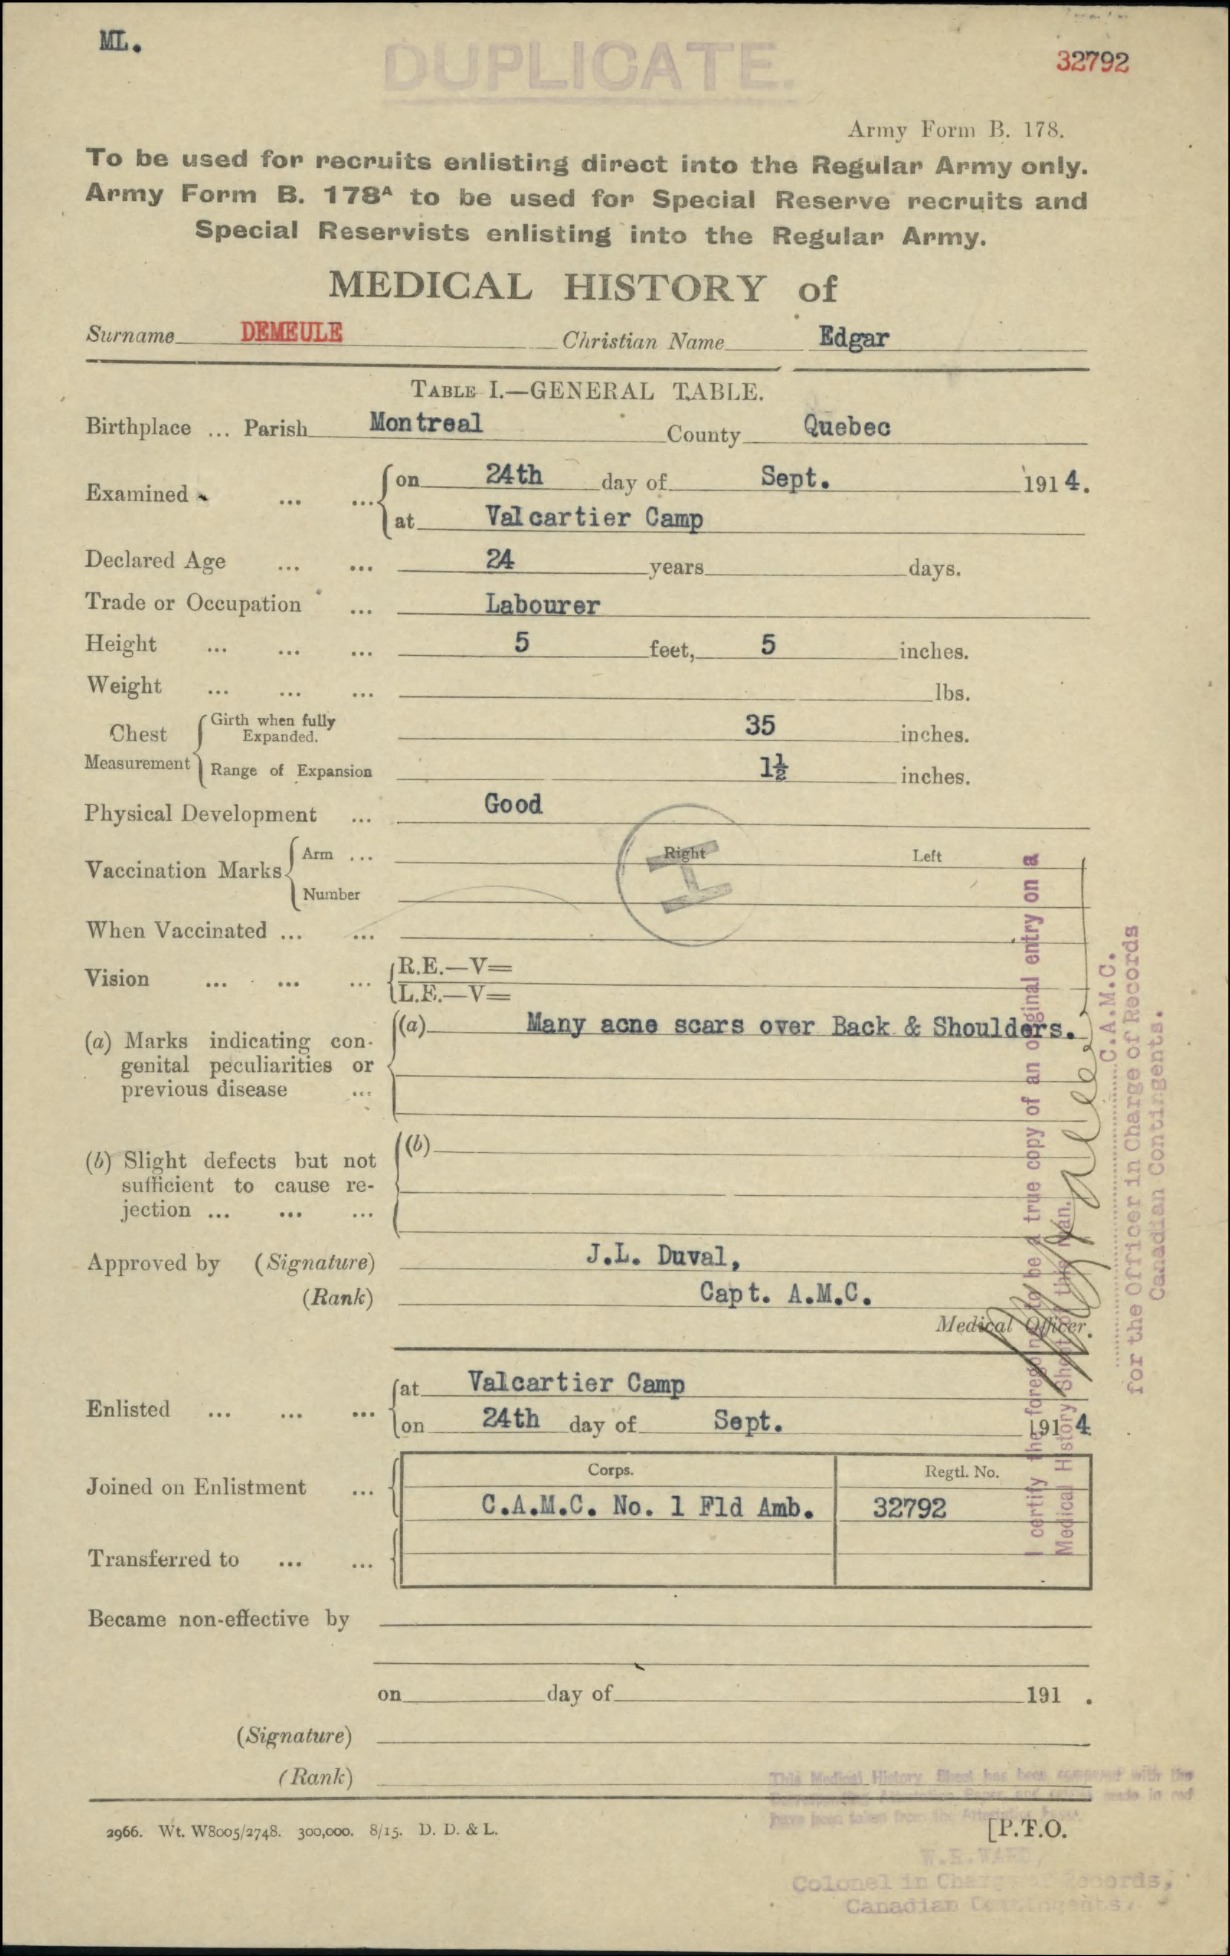 ML.
DUPLICATE.
32792
Army Form B. 178.
To be used for recruits enlisting direct into the Regular Army only.
Army Form B. 178A to be used for Special Reserve recruits and
Special Reservists enlisting into the Regular Army.
MEDICAL HISTORY of
Surname DEMEULE Christian Name Edgar
TABLE I.—GENERAL TABLE.
Birthplace ... Parish Montreal County Quebec
Examined ... ... on 24th day of Sept. 1914.
at Valcartier Camp
Declared Age ... ... 24 years days.
Trade or Occupation ... Labourer
Height ... ... ... 5 feet, 5 inches.
Weight ... ... ... lbs.
Chest Measurement Girth when fully Expanded. 35 inches.
Range of Expansion 1½ inches.
Physical Development ... Good
Vaccination Marks Arm ... Right Left
Number
When Vaccinated ... ...
Vision ... ... ... R.E.—V=
L.E.—V=
(a) Marks indicating con-
genital peculiarities or
previous disease ...
(a) Many acne scars over Back & Shoulders.
(b) Slight defects but not
sufficient to cause re-
jection ... ... ...
(b)
Approved by (Signature) J.L. Duval,
(Rank) Capt. A.M.C.
Medical Officer.
Enlisted ... ... ... at Valcartier Camp
on 24th day of Sept. 1914
Corps. Regtl. No.
Joined on Enlistment ... C.A.M.C. No. 1 Fld Amb. 32792
Transferred to ... ...
Became non-effective by
on day of 191 .
(Signature)
(Rank)
I certify the foregoing to be a true copy of an original entry on a
Medical History Sheet of this man.
C.A.M.C.
for the Officer in Charge of Records
Canadian Contingents.
This Medical History Sheet has been compared with the
Attestation Paper and made in red
have been taken from the Attestation Paper
2966. Wt. W8005/2748. 300,000. 8/15. D. D. & L.
[P.T.O.
W.R. WARD,
Colonel in Charge of Records,
Canadian Contingents.